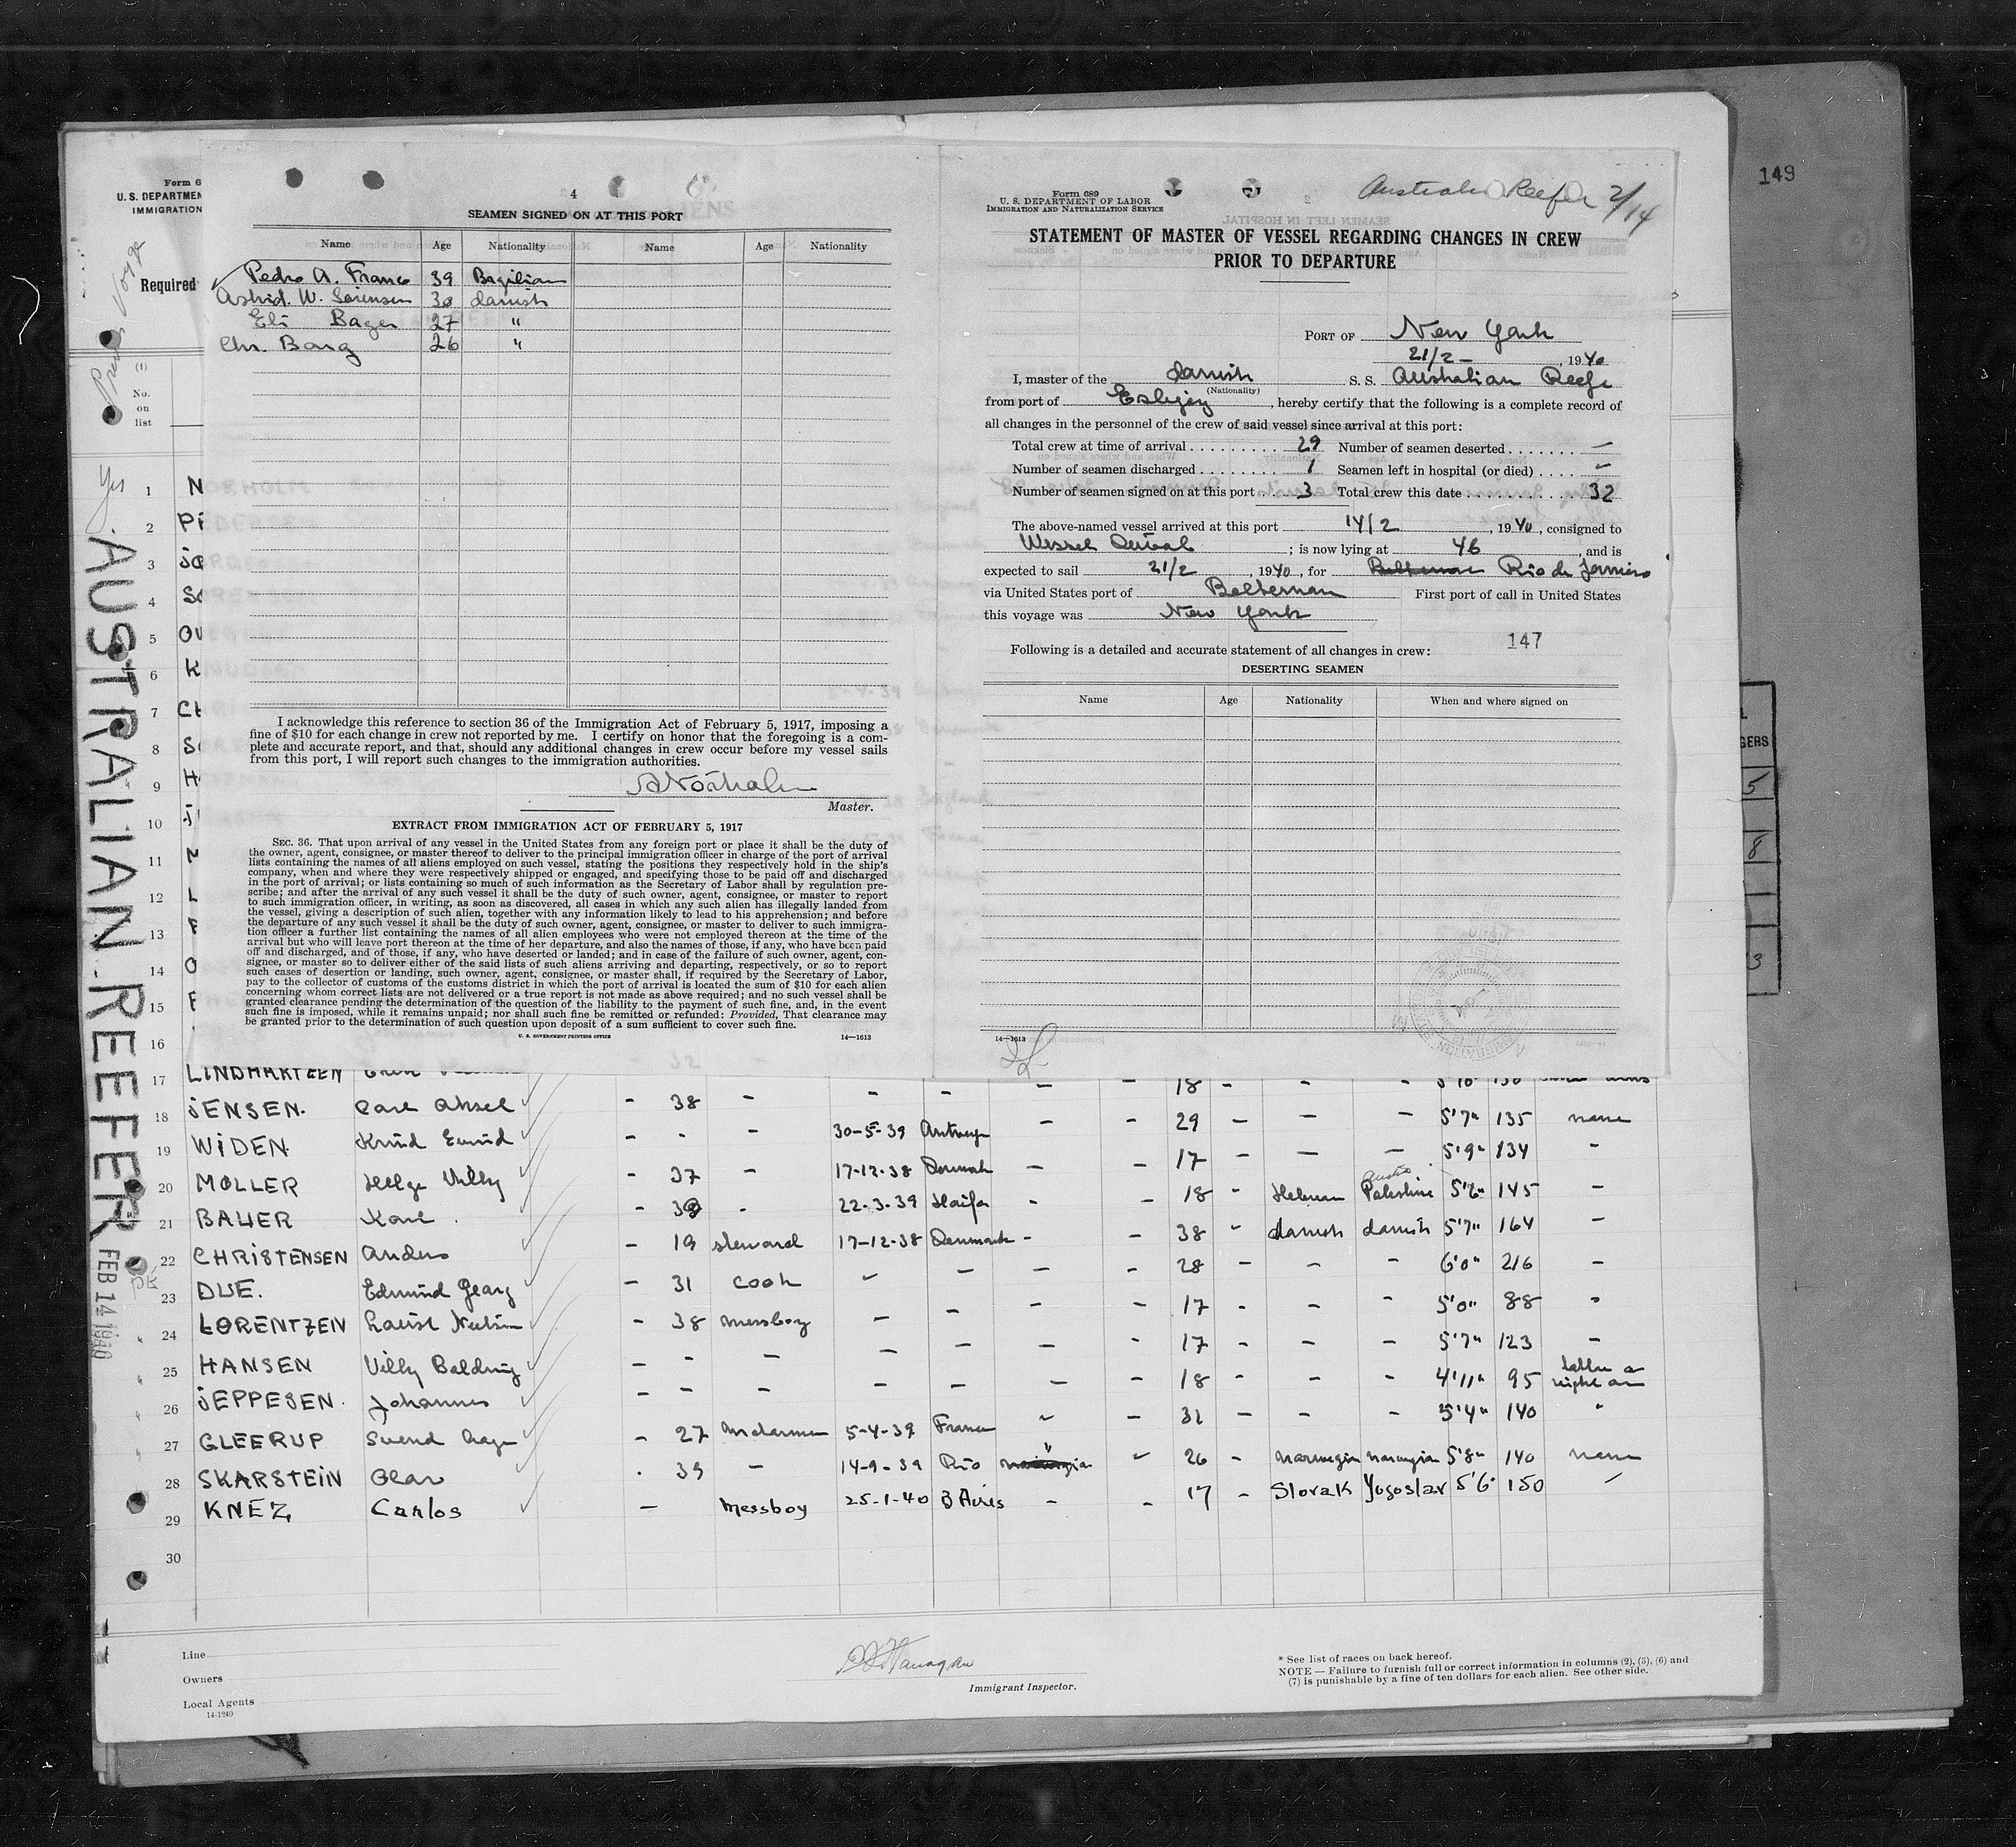 149
Form 6
U. S. DEPARTMEN
IMMIGRATION
Required
(1)
No.
on
list
AUSTRALIAN-REEFER
FEB 14 1940
Yes
4
SEAMEN SIGNED ON AT THIS PORT
Name Age Nationality Name Age Nationality
Pedro A. Franco 39 Bazilian
Astrid. W. Sørensen 30 danish
Eli Bager 27 "
Chr. Borg 26 "
I acknowledge this reference to section 36 of the Immigration Act of February 5, 1917, imposing a
fine of $10 for each change in crew not reported by me. I certify on honor that the foregoing is a com-
plete and accurate report, and that, should any additional changes in crew occur before my vessel sails
from this port, I will report such changes to the immigration authorities.
Master.
EXTRACT FROM IMMIGRATION ACT OF FEBRUARY 5, 1917
SEC. 36. That upon arrival of any vessel in the United States from any foreign port or place it shall be the duty of
the owner, agent, consignee, or master thereof to deliver to the principal immigration officer in charge of the port of arrival
lists containing the names of all aliens employed on such vessel, stating the positions they respectively hold in the ship's
company, when and where they were respectively shipped or engaged, and specifying those to be paid off and discharged
in the port of arrival; or lists containing so much of such information as the Secretary of Labor shall by regulation pre-
scribe; and after the arrival of any such vessel it shall be the duty of such owner, agent, consignee, or master to report
to such immigration officer, in writing, as soon as discovered, all cases in which any such alien has illegally landed from
the vessel, giving a description of such alien, together with any information likely to lead to his apprehension; and before
the departure of any such vessel it shall be the duty of such owner, agent, consignee, or master to deliver to such immigra-
tion officer a further list containing the names of all alien employees who were not employed thereon at the time of the
arrival but who will leave port thereon at the time of her departure, and also the names of those, if any, who have been paid
off and discharged, and of those, if any, who have deserted or landed; and in case of the failure of such owner, agent, con-
signee, or master so to deliver either of the said lists of such aliens arriving and departing, respectively, or so to report
such cases of desertion or landing, such owner, agent, consignee, or master shall, if required by the Secretary of Labor,
pay to the collector of customs of the customs district in which the port of arrival is located the sum of $10 for each alien
concerning whom correct lists are not delivered or a true report is not made as above required; and no such vessel shall be
granted clearance pending the determination of the question of the liability to the payment of such fine, and, in the event
such fine is imposed, while it remains unpaid; nor shall such fine be remitted or refunded: Provided, That clearance may
be granted prior to the determination of such question upon deposit of a sum sufficient to cover such fine.
U. S. GOVERNMENT PRINTING OFFICE 14—1613
Form 689
U. S. DEPARTMENT OF LABOR
IMMIGRATION AND NATURALIZATION SERVICE
Australian Reefer 2/14
STATEMENT OF MASTER OF VESSEL REGARDING CHANGES IN CREW
PRIOR TO DEPARTURE
PORT OF New York
21/2 - , 1940
I, master of the danish S. S. Australian Reefe
(Nationality)
from port of Esbjerg , hereby certify that the following is a complete record of
all changes in the personnel of the crew of said vessel since arrival at this port:
Total crew at time of arrival 29 Number of seamen deserted —
Number of seamen discharged 1 Seamen left in hospital (or died) -
Number of seamen signed on at this port 3 Total crew this date 32
The above-named vessel arrived at this port 14/2 , 1940, consigned to
Wessel Duval ; is now lying at 46 , and is
expected to sail 21/2 , 1940, for Rio de Janniero
via United States port of Belteman First port of call in United States
this voyage was New York
147
Following is a detailed and accurate statement of all changes in crew:
DESERTING SEAMEN
Name Age Nationality When and where signed on
14—1613
1 N
2 PE
3 JO
4 SO
5 OV
6 K
7 CH
8 SO
9 H
10 J
11
12 L
13 F
14 O
15 F
16
17 LINDHARTSEN 18
18 JENSEN. Carl Aksel - 38 - - - - - 29 - - - 5'7" 135 none
19 WIDEN. Knud Eivind - - - 30-5-39 Antwerp - - 17 - - - 5'9" 134 "
20 MØLLER Helge Villy - 37 - 17-12-38 Denmark - - 18 - Hebrew Palestine 5'6" 145 -
21 BAUER Karl - 39 - 22-3-39 Haifa - - 38 - danish danish 5'7" 164 -
22 CHRISTENSEN Anders - 19 steward 17-12-38 Denmark - - 28 - - - 6'0" 216 -
23 DUE. Edmund Georg - 31 Cook - - - - 17 - - - 5'0" 88 "
24 LØRENTZEN Laurst Nielsen - 38 messboy - - - - 17 - - - 5'7" 123 -
25 HANSEN Villy Balding - - - - - - - 18 - - - 4'11" 95
26 JEPPESEN. Johannes - - - - - - - 31 - - - 5'4" 140 "
27 GLEERUP Svend Aage - 27 5-4-39 France " - 26 - norwegin norwegin 5'8" 140 none
28 SKARSTEIN Olav - 39 - 14-9-39 Rio " - 17 - Slovak Yugoslav 5'6" 150 -
29 KNEZ, Carlos - Messboy 25-1-40 B Aires - -
30
Line
Owners
Local Agents
14-1240
Immigrant Inspector.
* See list of races on back hereof.
NOTE — Failure to furnish full or correct information in columns (2), (5), (6) and
(7) is punishable by a fine of ten dollars for each alien. See other side.